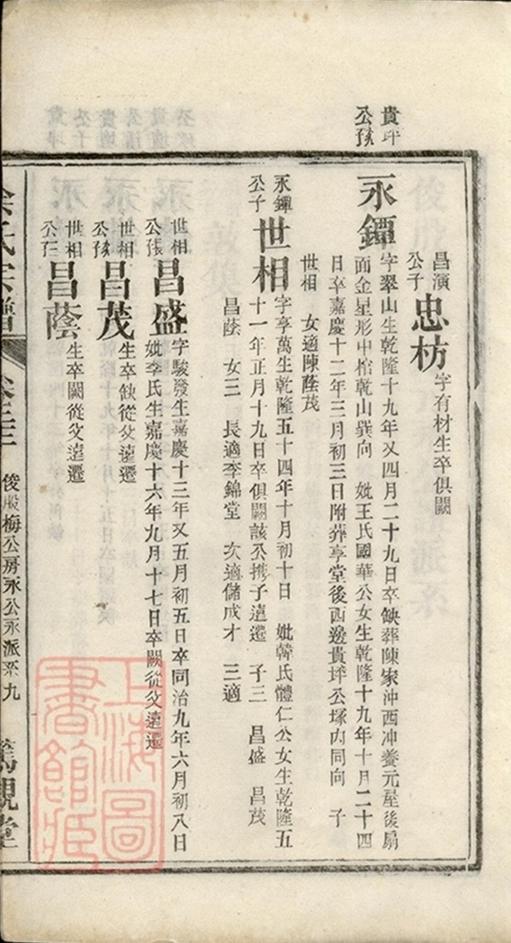 昌演公子
忠枋
字有材生卒俱闕
貴坪公孫
永鐔
字翠山生乾隆十九年又四月二十九日卒缺葬陳家沖西冲養元屋後扇
面金星形中棺乾山巽向 妣王氏國華公女生乾隆十九年十月二十四
日卒嘉慶十二年三月初三日附葬享堂後西邊貴坪公塚内同向 子
世相 女適陳蔭茂
永鐔公子
世相
字享萬生乾隆五十四年十月初十日 妣韓氏體仁公女生乾隆五
十一年正月十九日卒俱闕該公携子遠遷 子三 昌盛 昌茂
昌蔭 女三 長適李錦堂 次適儲成才 三適
世相公長
昌盛
字駿發生嘉慶十三年又五月初五日卒同治九年六月初八日
妣李氏生嘉慶十六年九月十七日卒闕從父遠遷
世相公次
昌茂
生卒缺從父遠遷
世相公三
昌蔭
生卒闕從父遠遷
氏宗譜
卷三三
俊股梅公房永公永派系九
篤親堂
上海圖
書館藏